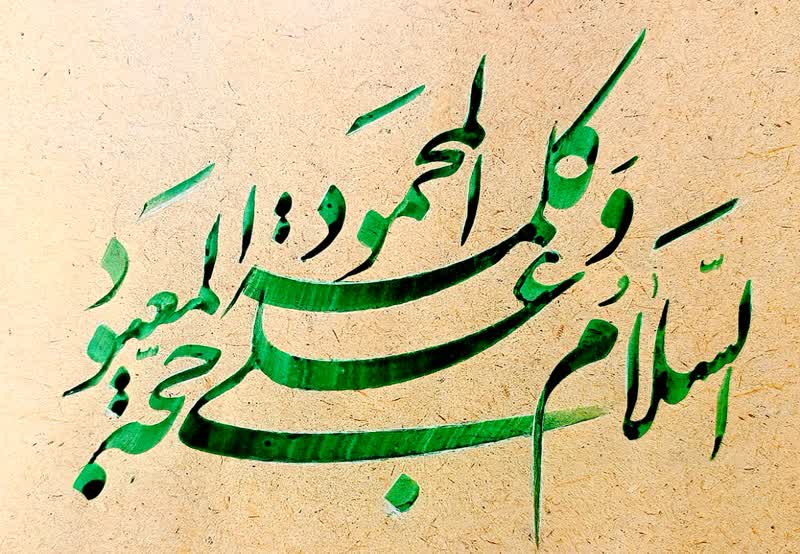 السَّلَامُ عَلَى حجّة المعبود
وَكلمة المحمود